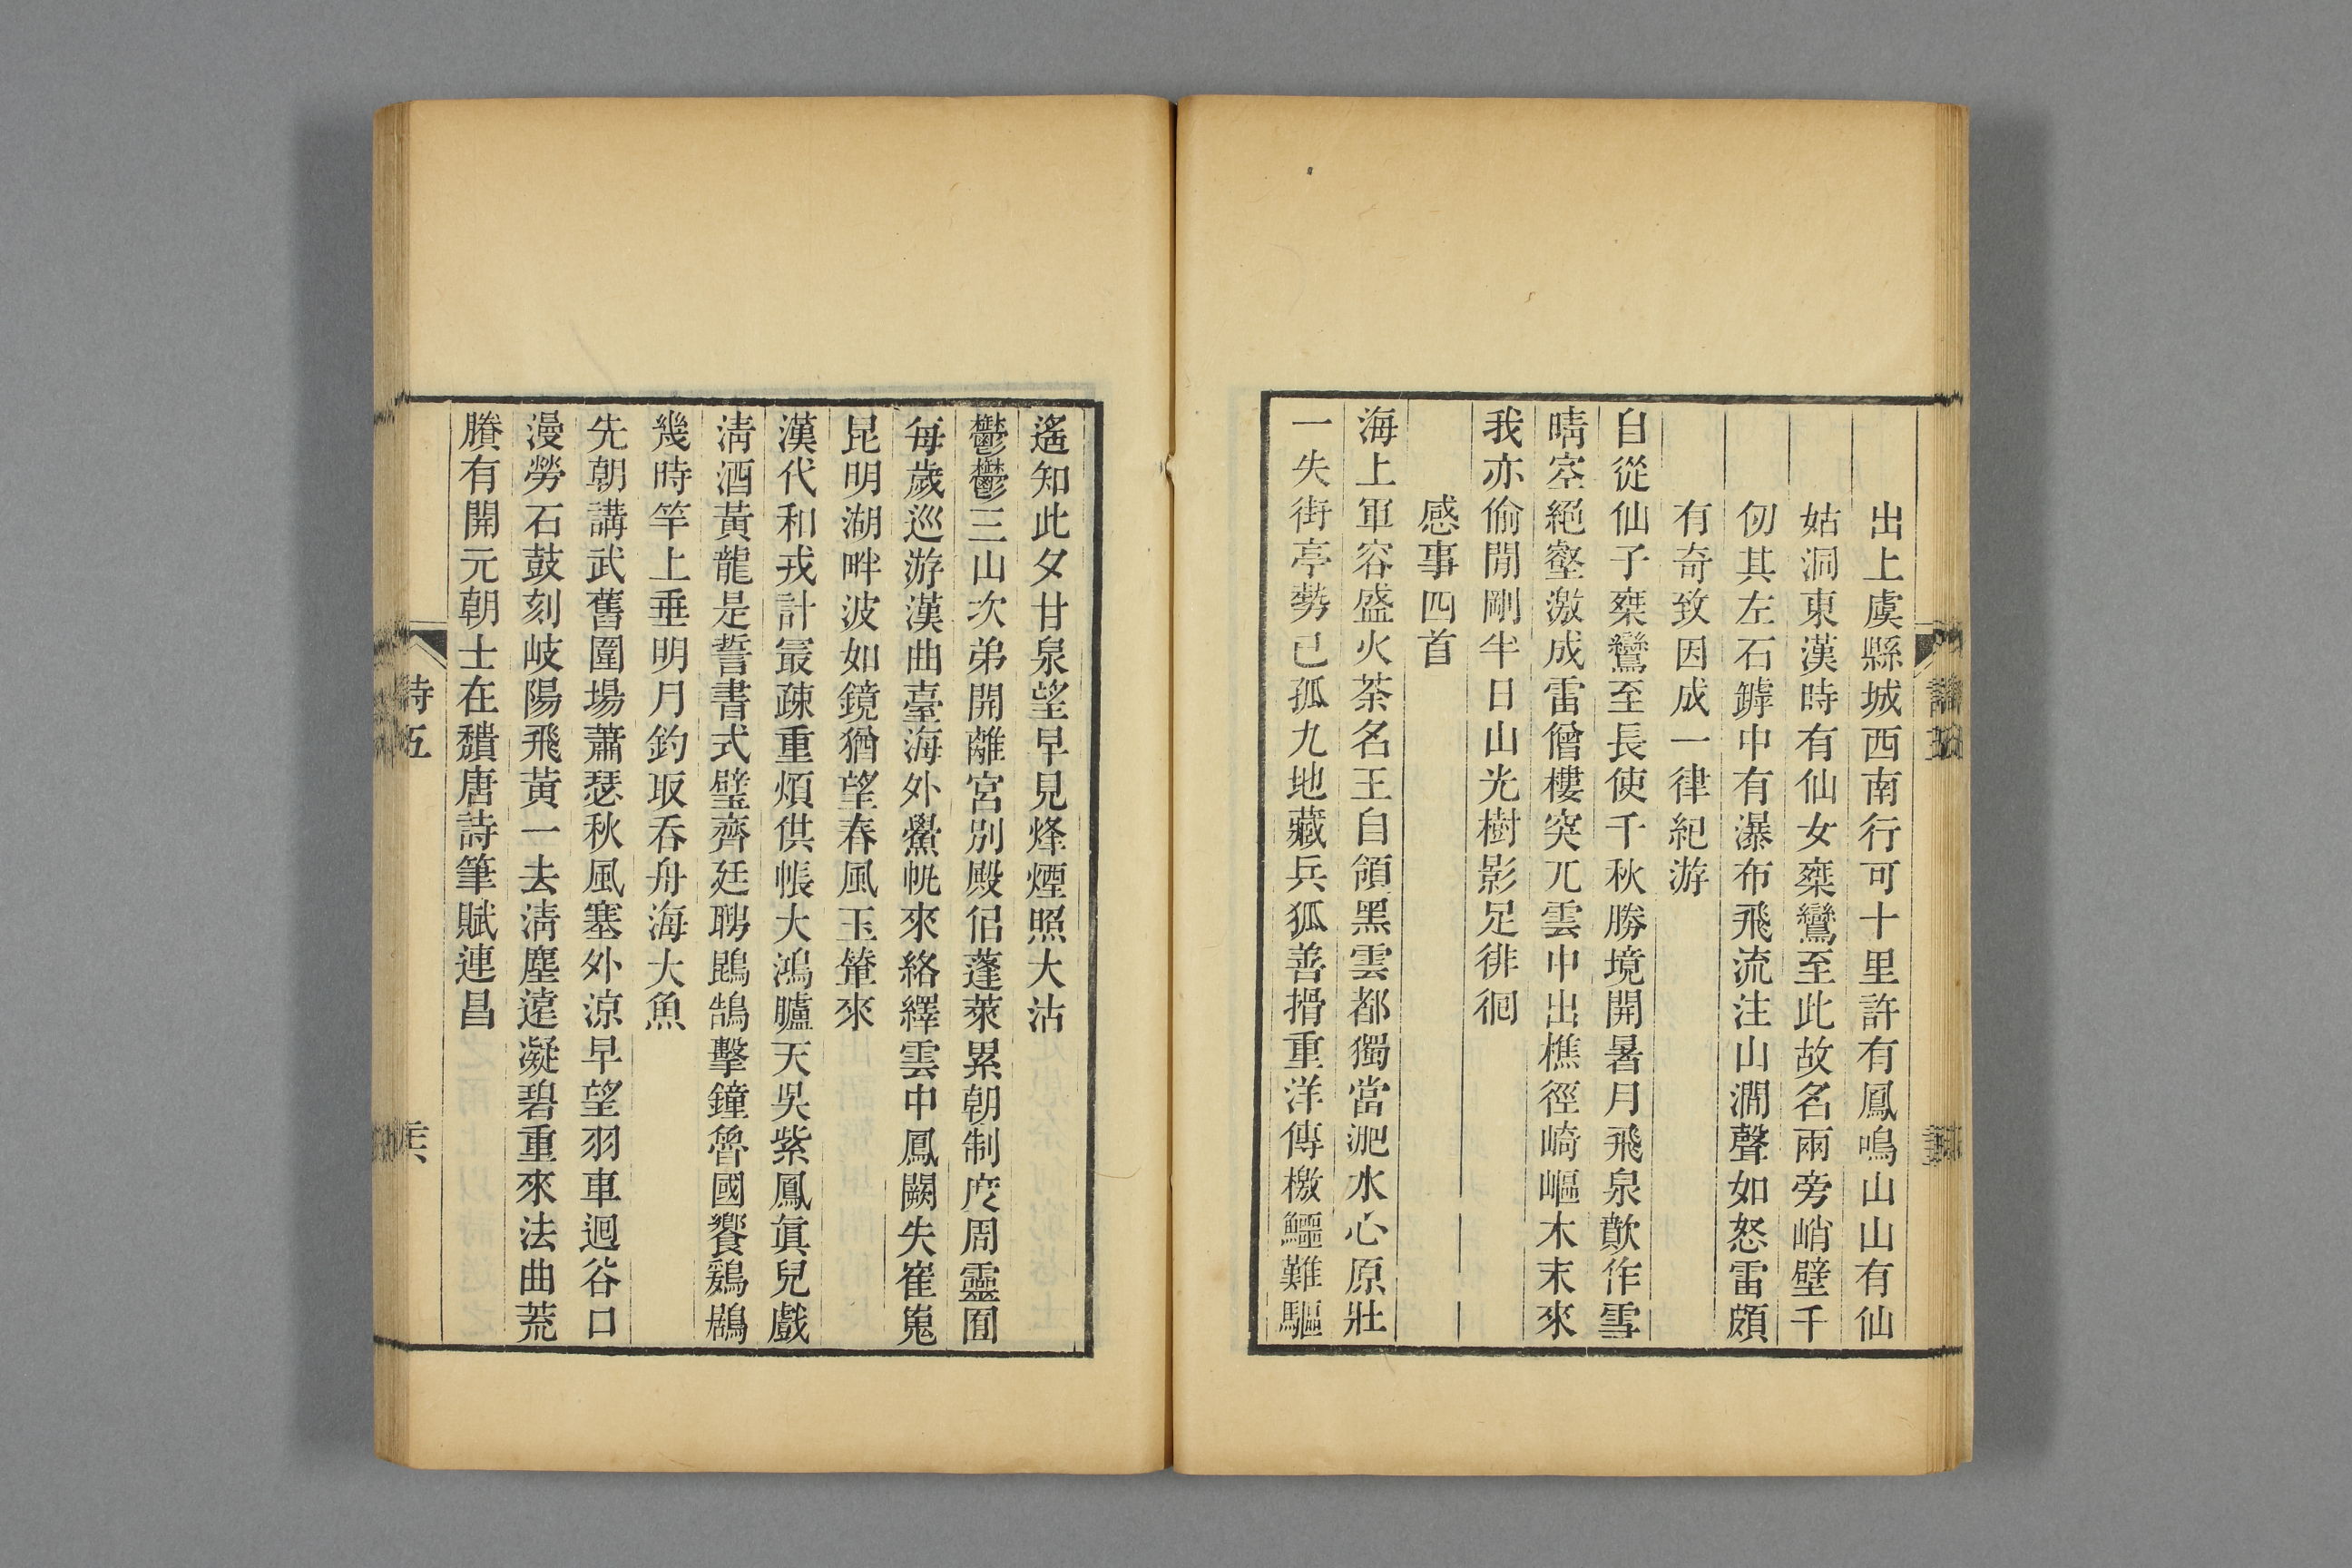 出上虞縣城西南行可十里許有鳳鳴山山有仙
姑洞東漢時有仙女椉鸞至此故名兩旁峭壁千
仞其左石罅中有瀑布飛流注山澗聲如怒雷頗
有奇致因成一律紀游
自從仙子椉鸞至長使千秋勝境開暑月飛泉歕作雪
晴空絕壑激成雷僧樓突兀雲中出樵徑崎嶇木末來
我亦偷閒剛半日山光樹影足徘徊
感事四首
海上軍容盛火荼名王自領黑雲都獨當淝水心原壯
一失街亭勢已孤九地藏兵狐善搰重洋傳檄鱷難驅
遙知此夕甘泉望早見烽煙照大沽
鬱鬱三山次弟開離宮別殿侶蓬萊累朝制度周靈囿
每歲巡游漢曲臺海外鱟帆來絡繹雲中鳳闕失崔嵬
昆明湖畔波如鏡猶望春風玉輦來
漢代和戎計㝡疎重煩供帳大鴻臚天吳紫鳳眞兒戲
清酒黃龍是誓書式璧齊廷聘鶤鵠擊鐘魯國饗鶢鶋
幾時竿上垂明月釣取吞舟海大魚
先朝講武舊圍場蕭瑟秋風塞外涼早望羽車迴谷口
漫勞石鼓刻岐陽飛黃一去清塵遠凝碧重來法曲荒
賸有開元朝士在穨唐詩筆賦連昌
詩五